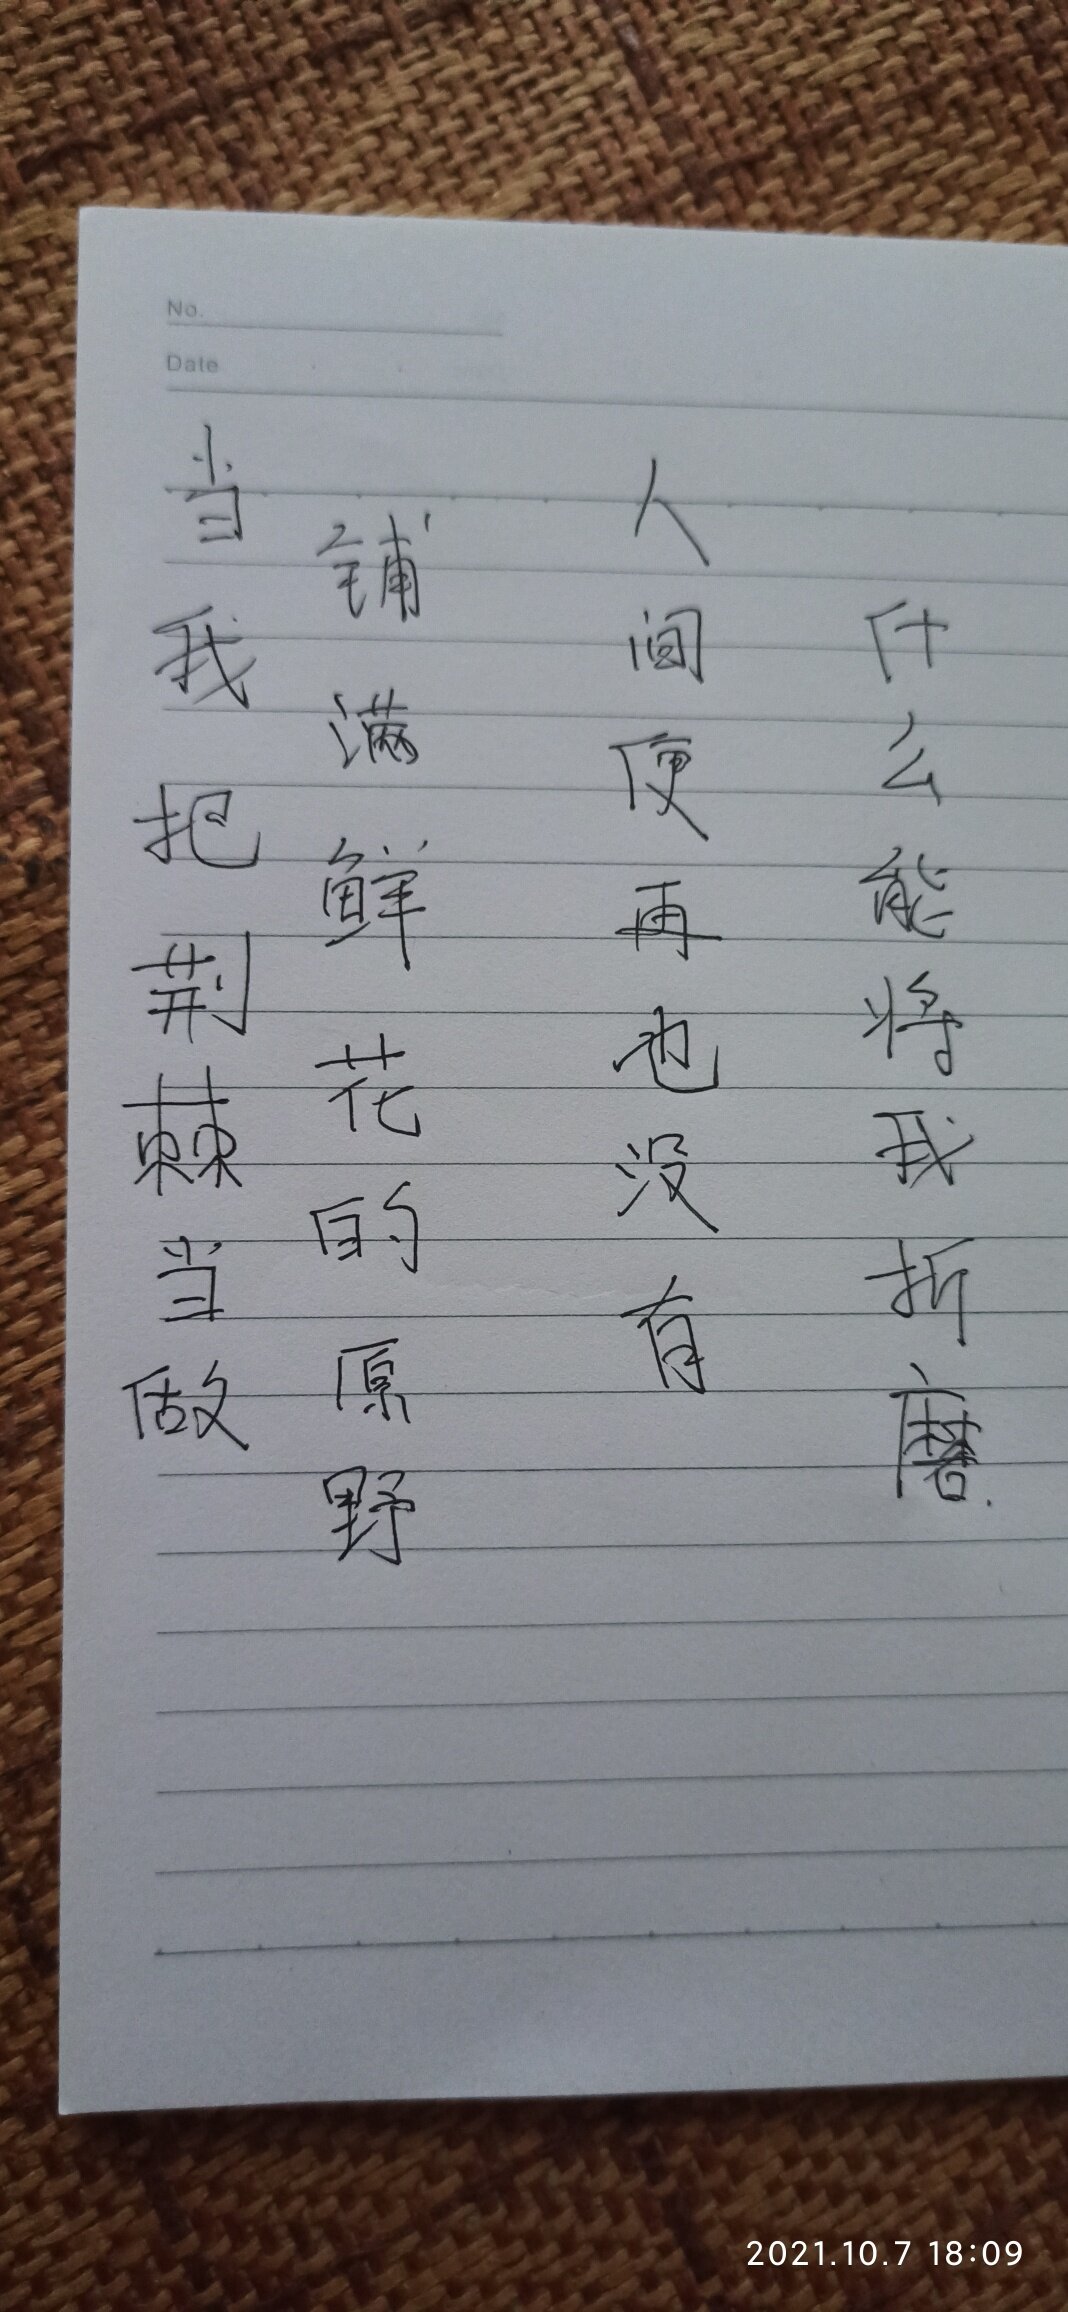 No.
Date
当我把荆棘当做
铺满鲜花的原野
人间便再也没有
什么能将我折磨.
2021.10.7 18:09